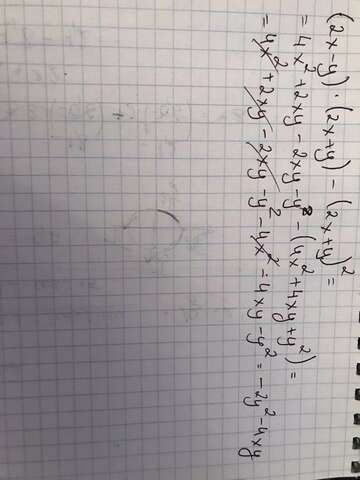 (2x-y)·(2x+y)-(2x+y)²=
=4x²+2xy-2xy-y²-(4x²+4xy+y²)=
=4x²+2xy-2xy-y²-4x²-4xy-y²=-2y²-4xy